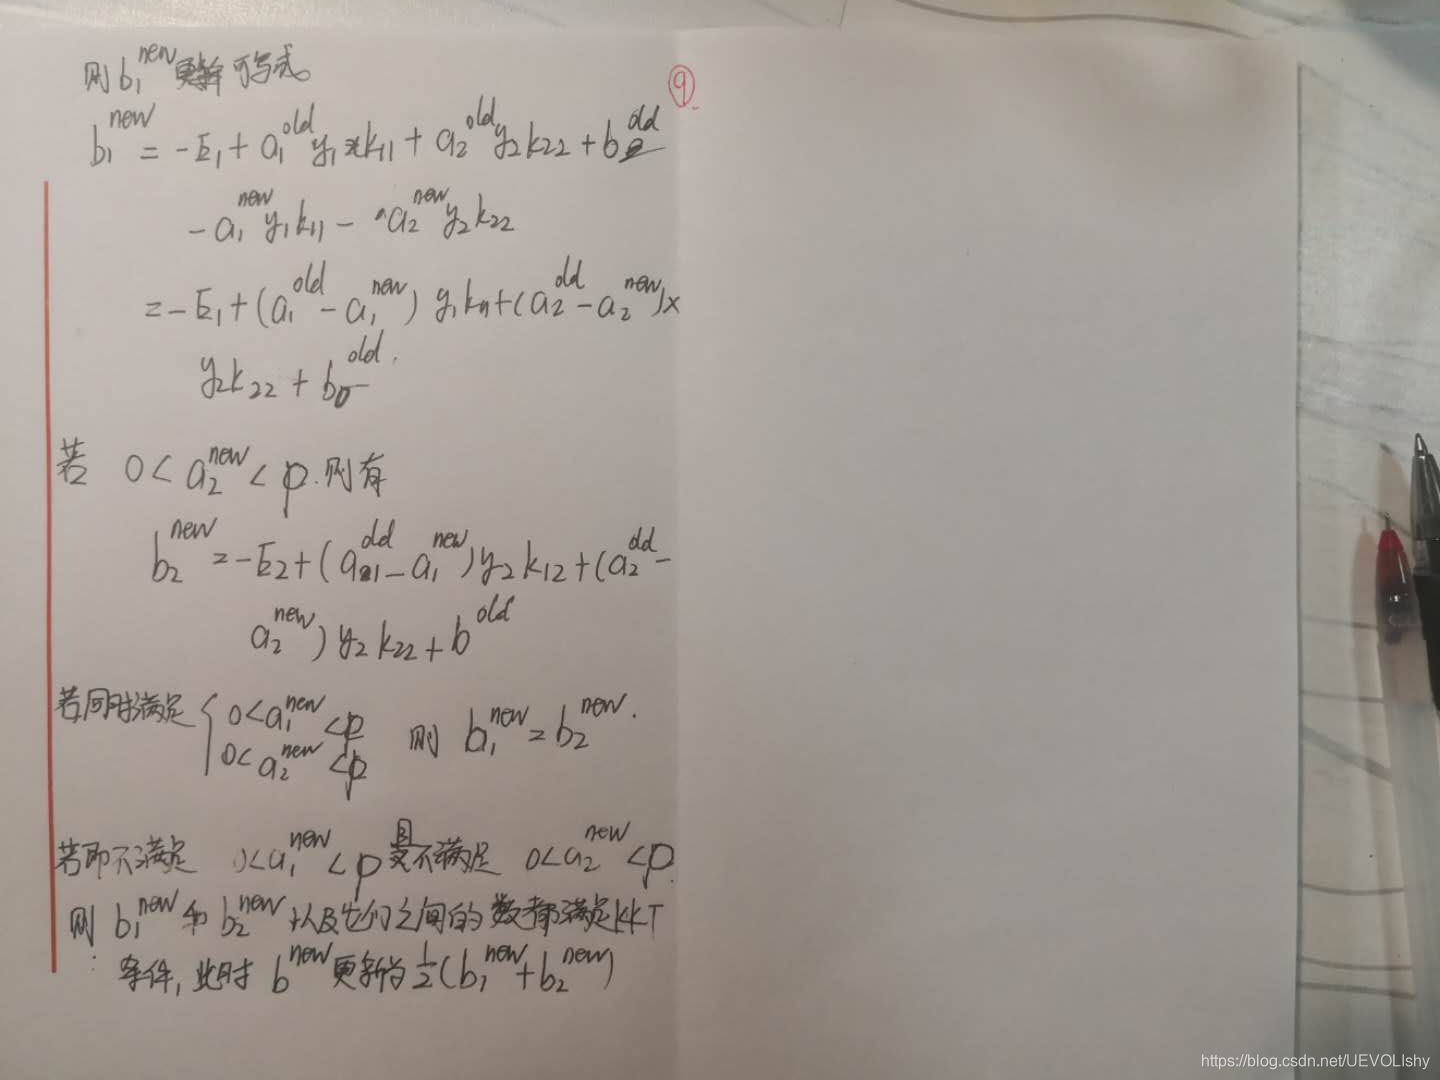 则 b₁^new 更新可写成。
⑨
b₁^new = -E₁ + a₁^old y₁ k₁₁ + a₂^old y₂ k₂₂ + b^old
- a₁^new y₁ k₁₁ - a₂^new y₂ k₂₂
= -E₁ + (a₁^old - a₁^new) y₁ k₁₁ + (a₂^old - a₂^new) ×
y₂ k₂₂ + b^old.
若 0 < a₂^new < p. 则有
b₂^new = -E₂ + (a₁^old - a₁^new) y₂ k₁₂ + (a₂^old -
a₂^new) y₂ k₂₂ + b^old
若同时满足 { 0 < a₁^new < p
0 < a₂^new < p 则 b₁^new = b₂^new.
若即不满足 0 < a₁^new < p 且不满足 0 < a₂^new < p.
则 b₁^new 和 b₂^new 以及它们之间的数都满足KKT
条件, 此时 b^new 更新为 ½(b₁^new + b₂^new)
https://blog.csdn.net/UEVOLIshy